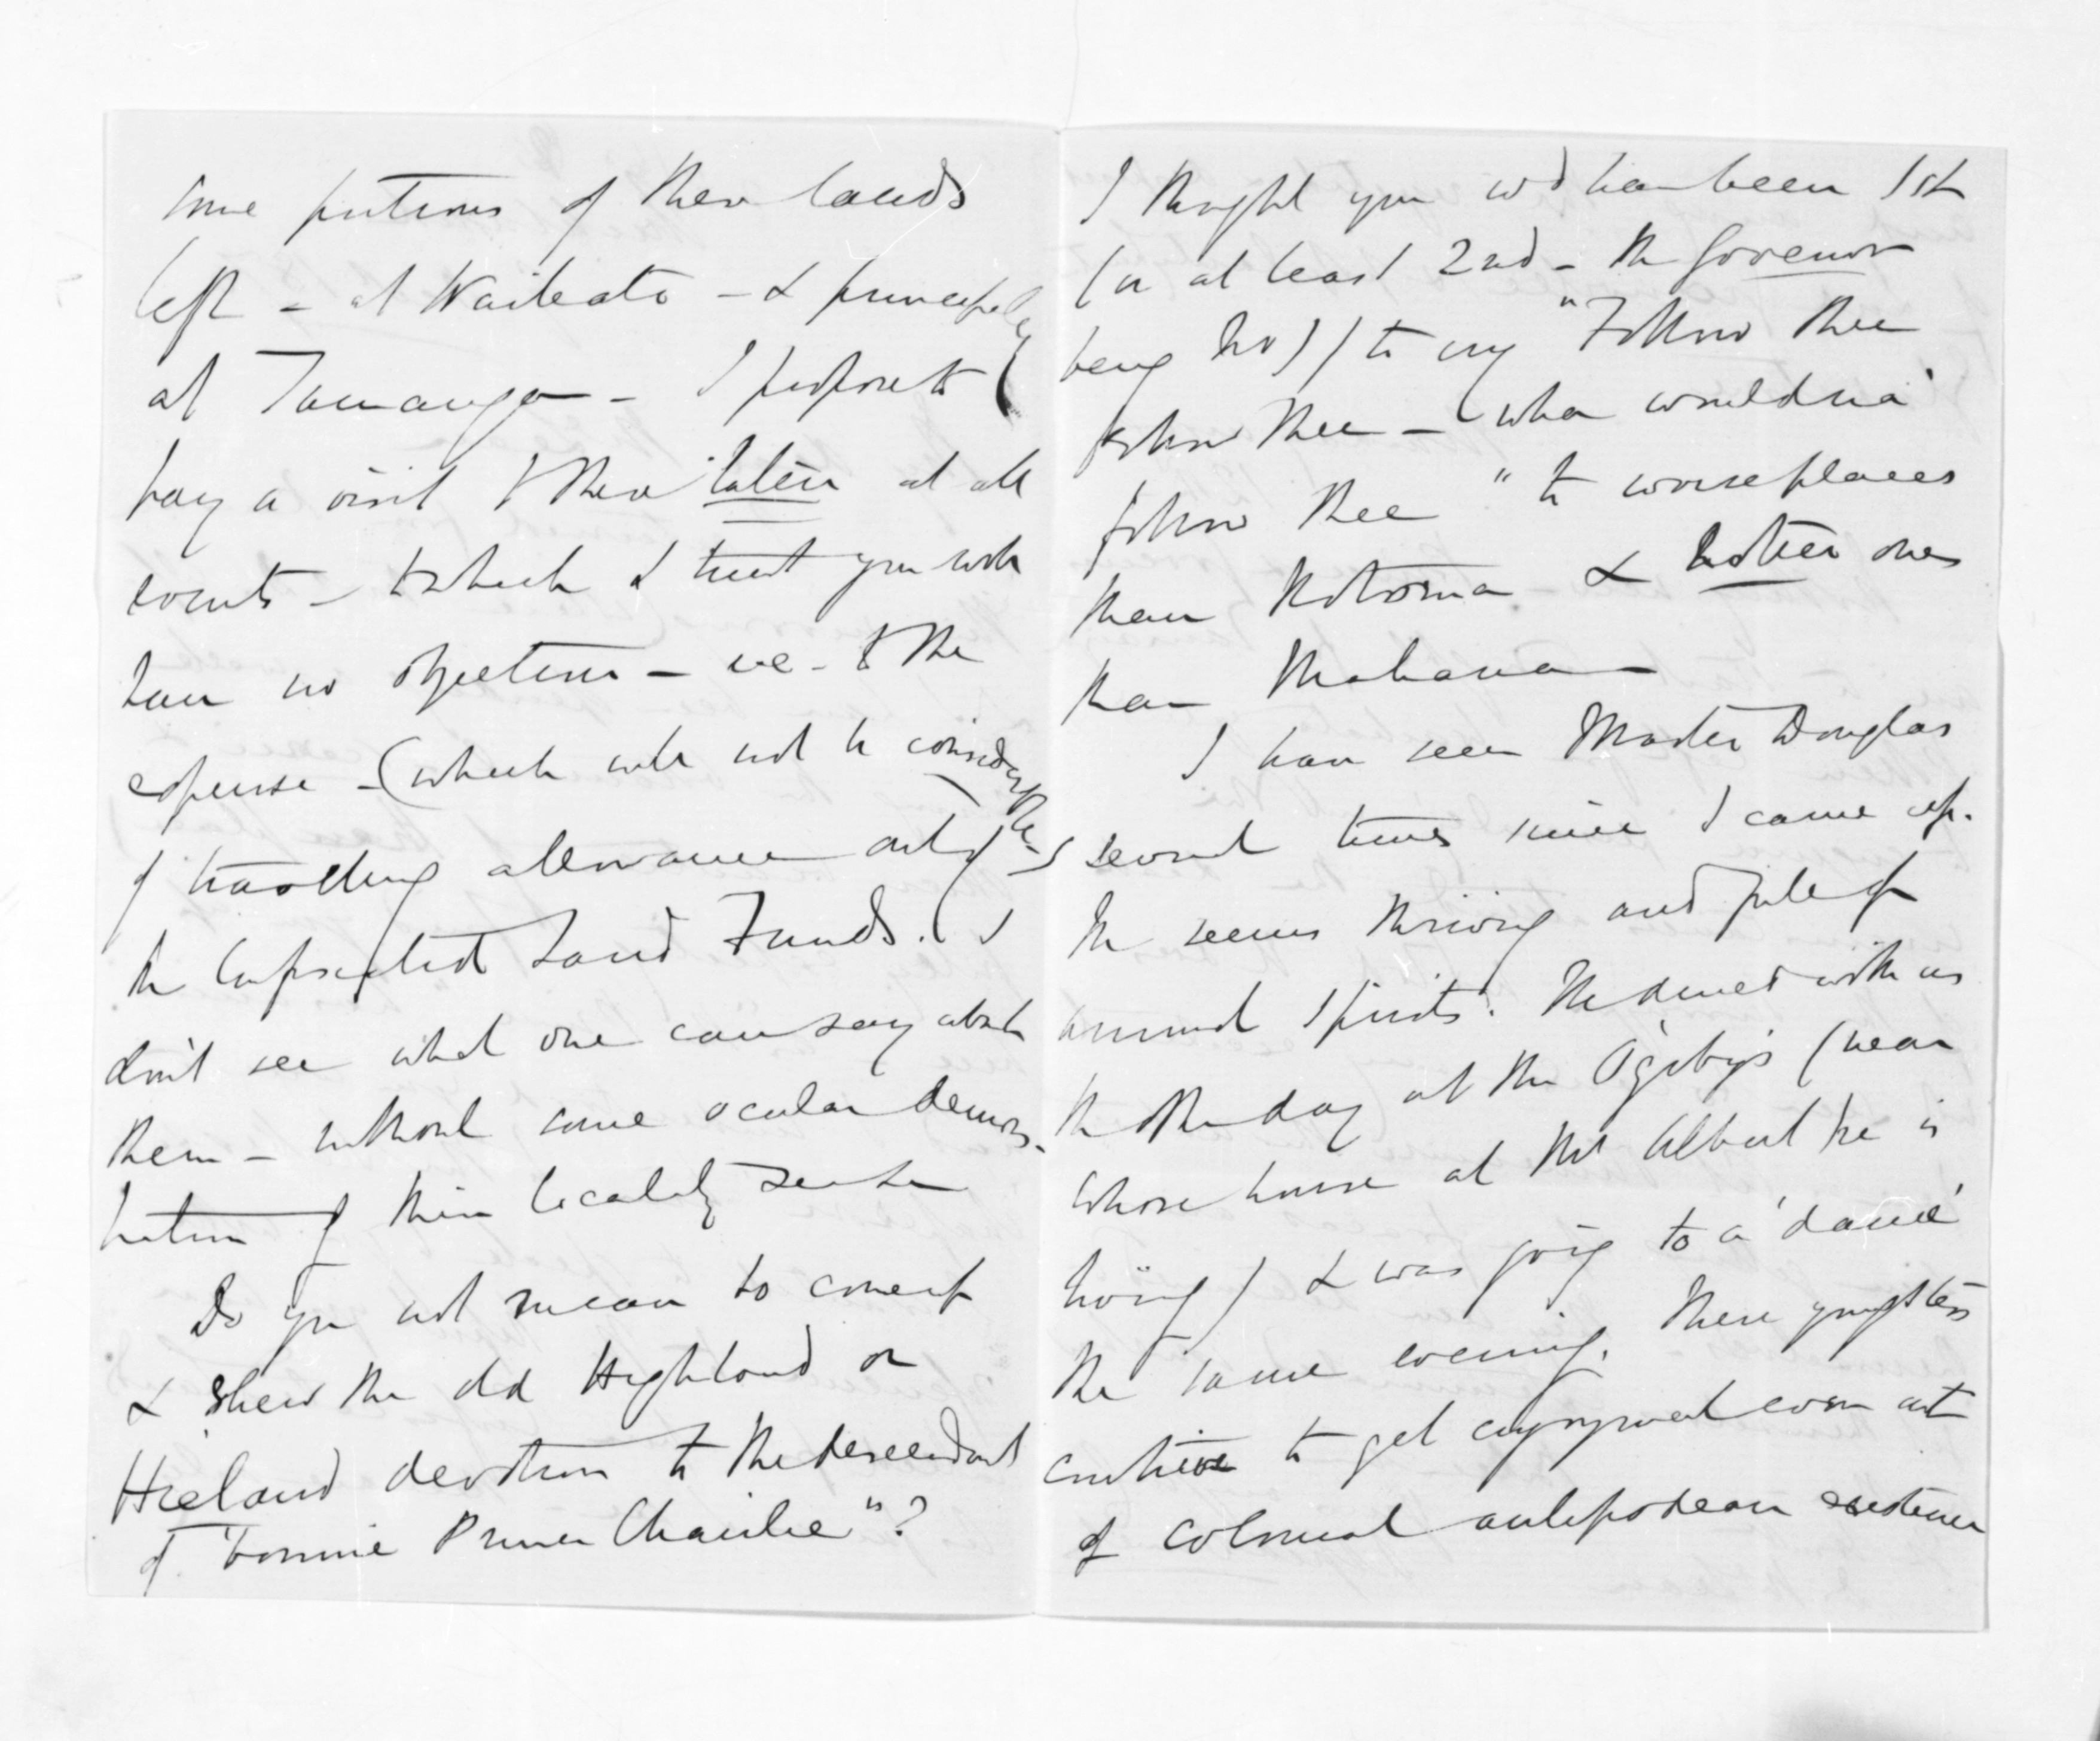 some portions of these lands
left - at Waikato - & principally
at Tauranga - I propose to
pay a visit to these latter at all
events - to which I trust you will
have no objection - i.e. to the
expense - (which will not be considerable)
of travelling allowance out of
the Confiscated Land Funds. I
don't see what one can say about
them - without some ocular demons-
tration of their locality
Do you not mean to come up
& shew the old Highland or
Hieland devotion to the descendant
of "bonnie Prince Chairlie"?
I thought you wd have been 1st
(or at least 2nd - the Govenor
being No 1) to cry "Follow thee
follow thee - wha wouldna'
follow thee" to worse places
than Rotorua & hotter ones
than
I have seen Master Douglas
several times since I came up.
He seems thriving and full of
animal spirits. He dined with us
the other day at the Ogilby's (near
whose house at Mt Albert he is
living) & was going to a 'dance'
the same evening. These youngsters
contrive to get enjoyment even out
of colonial antipodean existence